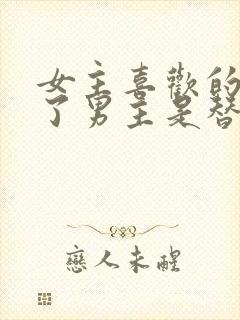 女主喜歡的
了男主是替
戀人未醒